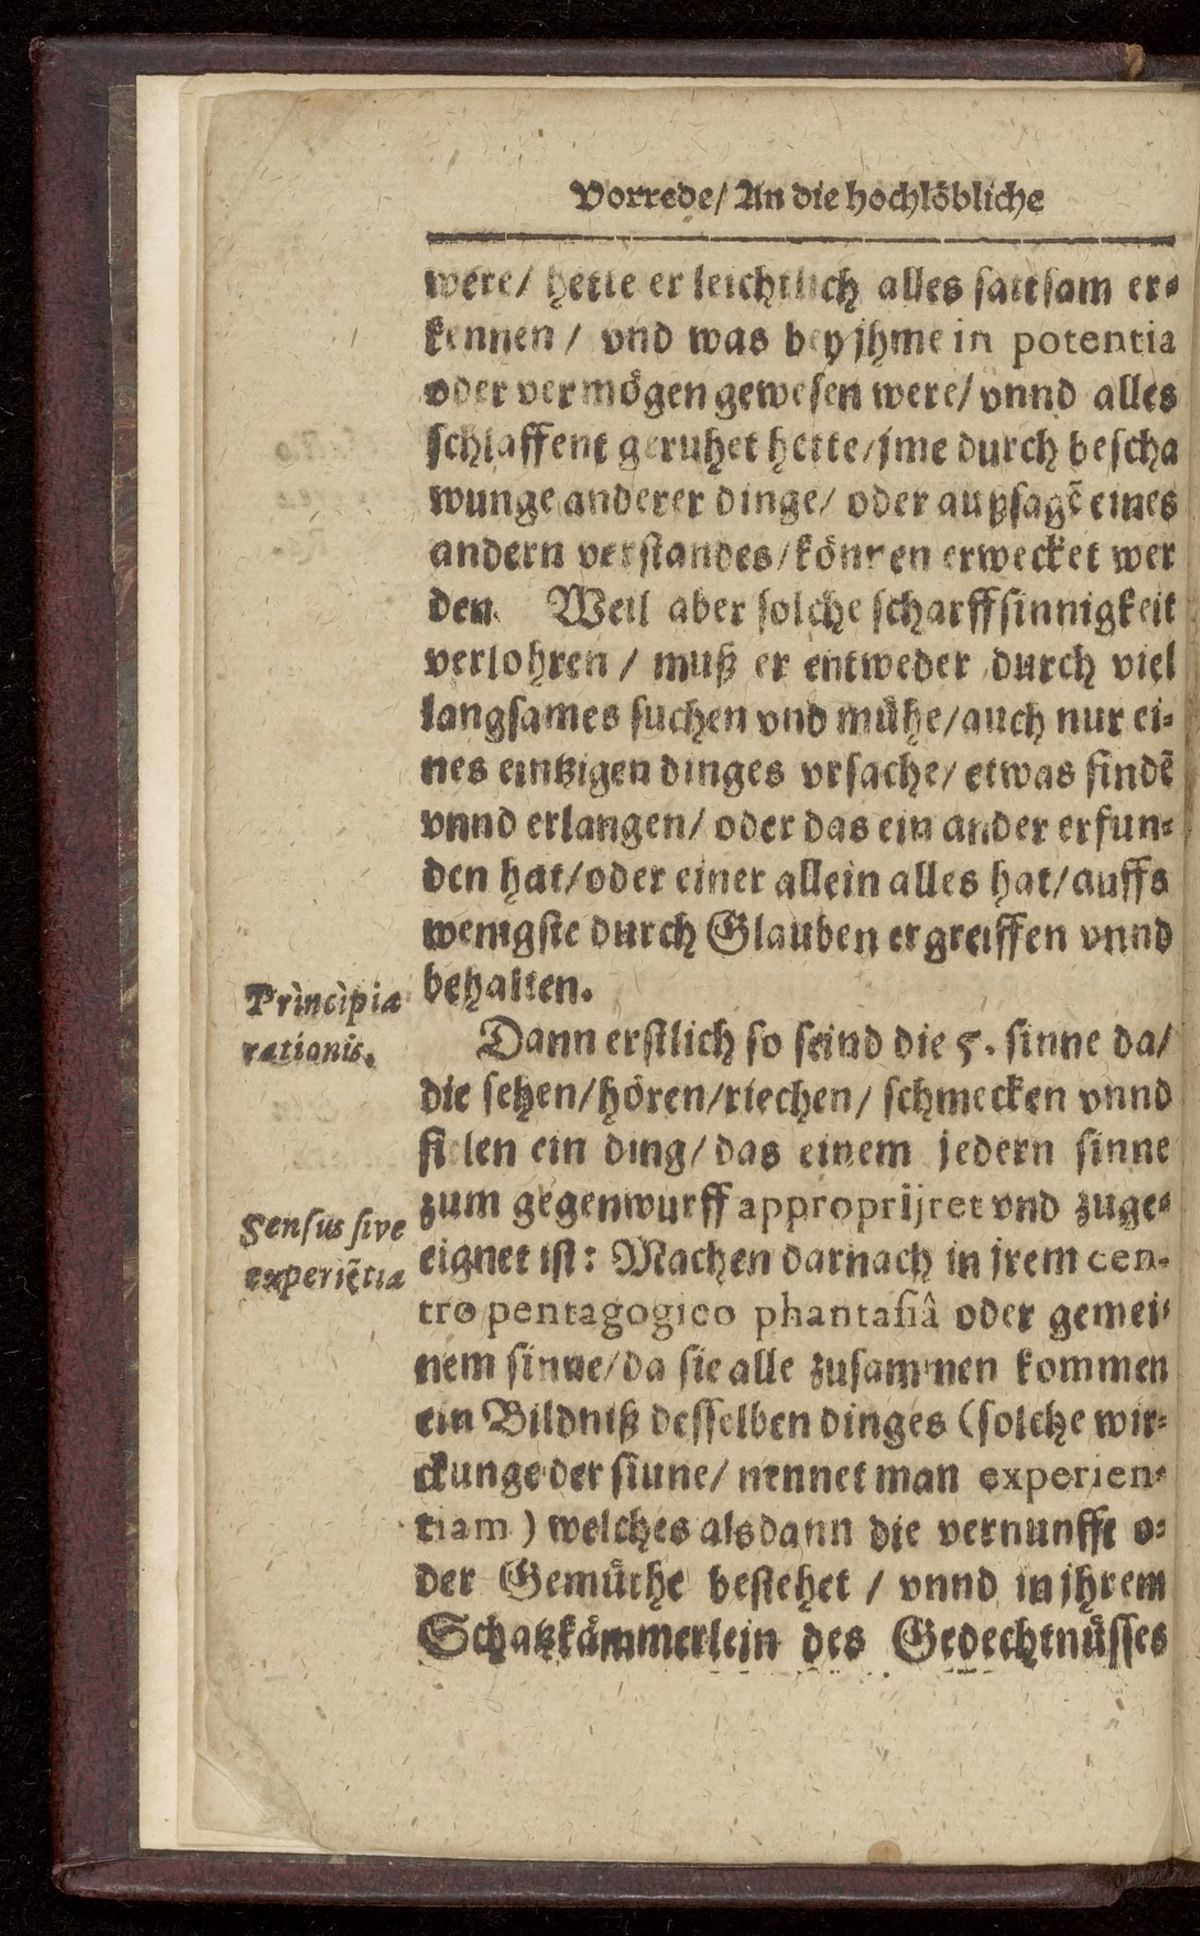 Vorrede/ An die hochlöbliche
were/ hette er leichtlich alles sattsam er⸗
kennen / vnd was bey jhme in potentia
oder vermögen gewesen were/ vnnd alles
schlaffent geruhet hette/ jme durch bescha
wunge anderer dinge/ oder außsagẽ eines
andern verstandes/ können erwecket wer
den. Weil aber solche scharffsinnigkeit
verlohren / muß er entweder durch viel
langsames suchen vnd mühe/ auch nur ei⸗
nes eintzigen dinges vrsache/ etwas findẽ
vnnd erlangen/ oder das ein ander erfun⸗
den hat/ oder einer allein alles hat/ auffs
wenigste durch Glauben ergreiffen vnnd
behalten.
Principia
rationis.
Dann erstlich so seind die 5. sinne da/
die sehen/ hören/ riechen/ schmecken vnnd
fielen ein ding/ das einem jedern sinne
zum gegenwurff approprijret vnd zuge⸗
Sensus sive
experiẽtia
eignet ist: Machen darnach in jrem cen-
tro pentagogico phantasiâ oder gemei⸗
nem sinne/ da sie alle zusammen kommen
ein Bildniß desselben dinges (solche wir⸗
ckunge der siune/ nennet man experien⸗
tiam ) welches alsdann die vernunfft o⸗
der Gemüthe bestehet / vnnd in jhrem
Schatzkämmerlein des Gedechtnüsses